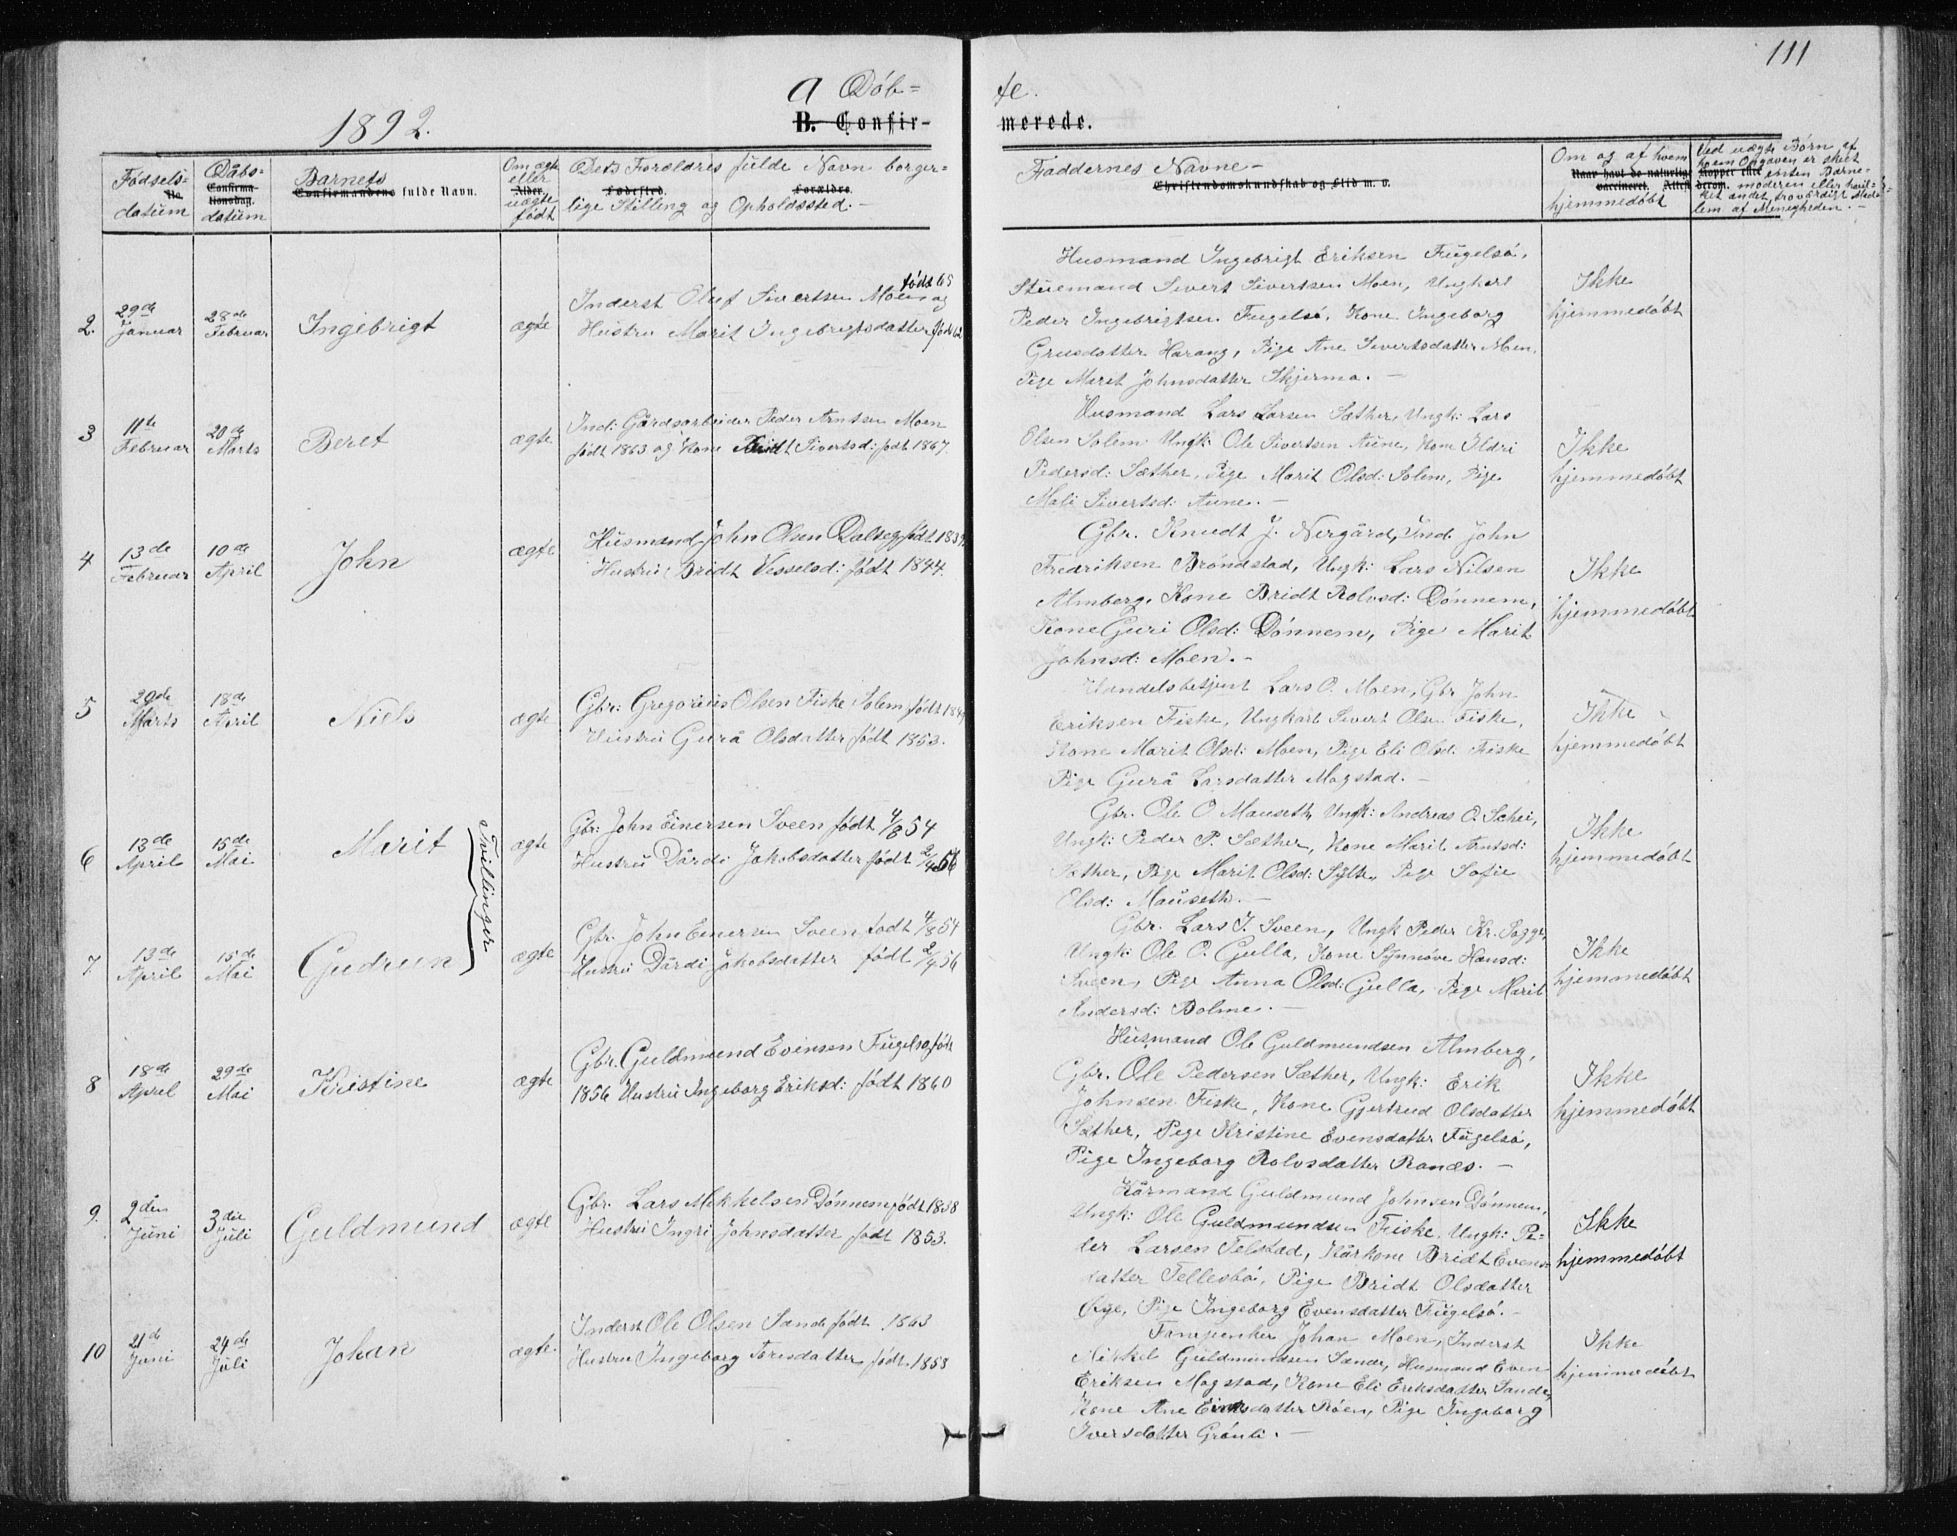 111
1892.
A Døb-
te.
B. Confir-
merede.
Fødsels-
No.
datum
Dåbs-
Confirma-
tionsdag.
datum
Barnets
Confirmandens fulde Navn.
Om ægte
eller
Alder.
uægte
født
Dets Forældres fulde Navn borger-
Fødested. Forældre.
lige Stilling og Opholdssted.-
Faddernes Navne-
Christendomskundskab og Flid m. v.
Om og af hvem
Naar havt de naturlige
vaccineret. Attest
hjemmedøbt
Ved uægte Børn, af
hvem Opgaven er skeet
Kopper eller enten Barne-
derom. moderen eller
ket andet, troværdigt Med-
lem af Menigheden.-
2.
29de
Januar
28de
Februar
Ingebrigt
ægte
Inderst Oluf Sivertsen Moen og
født 65
Hustru Marit Ingebrigtsdatter født 62
Husmand Ingebrigt Eriksen Fugelsø,
Stuemand Sivert Sivertsen Moen, Ungkarl
Peder Ingebrigtsen Fugelsø, Kone Ingeborg
Gruedatter Harang, Pige Ane Sivertsdatter Moen,
Pige Marit Johnsdatter Skjerma.-
Ikke
hjemmedøbt
3
11te
Februar
20de
Marts
Beret
ægte
Ind: Gårdsarbeider Peder Arntsen Moen
født 1863 og Kone Sivertsd: født 1867.
Husmand Lars Larsen Sæther, Ungk: Lars
Olsen Solem Ungk: Ole Sivertsen Aune, Kone Ildri
Pedersd: Sæther, Pige Marit Olsd: Solem, Pige
Mali Sivertsd: Aune.-
Ikke
hjemmedøbt
4
13de
Februar
10de
April
John
ægte
Husmand John Olsen Dalseg født 1839.
Hustru: Bridt Vesselsd: født 1844.
Gbr. Knudt J. Nergård, Ind. John
Fredriksen Brøndstad, Ungk: Lars Nilsen
Almberg, Kone Bridt Rolvsd: Dønnem,
Kone Guri Olsd: Dønnem, Pige Marit
Johnsd: Moen.-
Ikke
hjemmedøbt
5
29de
Marts
18de
April
Niels
ægte
Gbr: Gregorius Olsen Fiske Solem født
Hustru Gurå Olsdatter født 1853.
Handelsbetjent Lars O. Moen, Gbr John
Eriksen Fiske, Ungkarl Sivert Olsen Fiske,
Kone Marit Olsd: Moen, Pige Eli Olsd: Fiske
Pige Gurå Larsdatter Magstad.-
Ikke
hjemmedøbt
6
13de
April
15de
Mai
Marit
Tvillinger
ægte
Gbr: John Einersen Sveen født 4/8 54
Hustru Dårdi Jakobsdatter født 2/4 56
Gbr. Ole O Mauseth, Ungk: Andreas O. Schei,
Ungk: Peder P. Sæther, Kone Marit Arntsd:
Sæther, Pige Marit Olsd: Sylte, Pige Sofie
Elsd: Mauseth.-
Ikke
hjemmedøbt
7
13de
April
15de
Mai
Gudrun
ægte
Gbr. John Einersen Sveen født 4/8 54
Hustru Dårdi Jakobsdatter født 2/4 56
Gbr. Lars J. Sveen, Ungk Peder Kr. Bagge,
Ungk: Ole O. Gulla, Kone Synnøve Hansd:
Sveen, Pige Anna Olsd: Gulla, Pige Marit
Andersd: Bolme.-
Ikke
hjemmedøbt
8
18de
April
29de
Mai
Kristine
ægte
Gbr. Guldmund Evensen Fugelsø født
1856 Hustru Ingeborg Eriksd: født 1860
Husmand Ole Guldmundsen Almberg,
Gbr. Ole Pedersen Sæther, Ungk: Erik
Johnsen Fiske, Kone Gjertrud Olsdatter
Sæther, Pige Kristine Evensdatter Fugelsø,
Pige Ingeborg Rolvsdatter Ranæs.-
Ikke
hjemmedøbt
9.
2den
Juni
3die
Juli
Guldmund
ægte
Gbr. Lars Mikkelsen Dønnem født 1858
Hustru Ingri Johnsdatter født 1853.
Kårmand Guldmund Johnsen Dønnem,
Ungk: Ole Guldmundsen Fiske, Ungk: Pe-
der Larsen Telstad, Kårkone Bridt Evens-
datter Tellesbø, Pige Bridt Olsdatter
Øye, Pige Ingeborg Evensdatter Fugelsø.-
Ikke
hjemmedøbt
10
21de
Juni
24de
Juli
Johan
ægte.
Inderst Ole Olsen Sande født 1863
Hustru Ingeborg Toresdatter født 1858
Johan Moen, Inderst
Mikkel Guldmundsen Sande, Husmand Even
Eriksen Magstad, Kone Eli Eriksdatter Sande,
Kone Ane Røen, Pige Ingeborg
Iversdatter Grønli.-
Ikke
hjemmedøbt